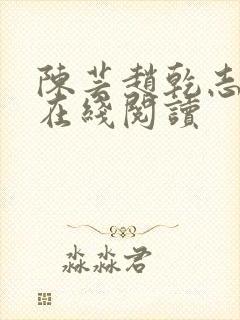 陳芸趙乾志
在綫閱讀
淼淼君